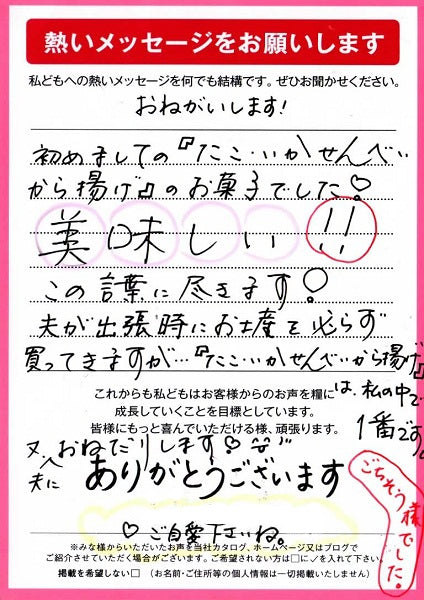 熱いメッセージをお願いします
私どもへの熱いメッセージを何でも結構です。ぜひお聞かせください。
おねがいします!
初めましての『たこ・いかせんべい
から揚げ』のお菓子でした♡
美味しい!!
この言葉に尽きます!
夫が出張時にお土産を必らず
買ってきますが…『たこ・いかせんべいから揚げ』
は、私の中で
1番です。
これからも私どもはお客様からのお声を糧に
成長していくことを目標としています。
皆様にもっと喜んでいただける様、頑張ります。
又、夫に おねだりします!♡
ありがとうございます
ごちそう様でした!
♡ご自愛下さいね。
※みな様からいただいたお声を当社カタログ、ホームページ又はブログで
ご紹介させていただく場合がございます。ご希望されない方は□に✓を入れて下さい。
掲載を希望しない□ (お名前・ご住所等の個人情報は一切掲載いたしません)